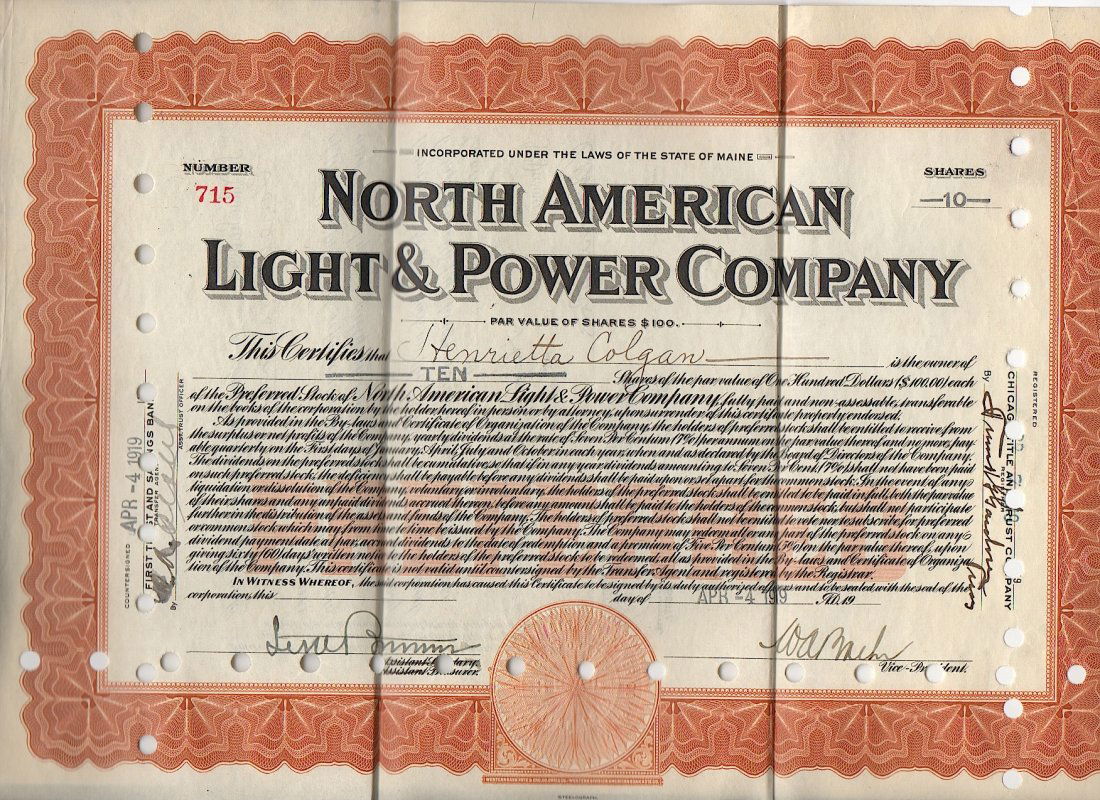 INCORPORATED UNDER THE LAWS OF THE STATE OF MAINE
NUMBER
715
SHARES
10
NORTH AMERICAN
LIGHT & POWER COMPANY
PAR VALUE OF SHARES $100.
This Certifies that Henrietta Colgan is the owner of
TEN Shares of the par value of One Hundred Dollars ($100.00) each
of the Preferred Stock of North American Light & Power Company, fully paid and non-assessable, transferable
on the books of the corporation by the holder hereof in person or by attorney, upon surrender of this certificate properly endorsed.
As provided in the By-laws and Certificate of Organization of the Company, the holders of preferred stock shall be entitled to receive from
the surplus or net profits of the Company, yearly dividends at the rate of Seven Per Centum 7% per annum on the par value thereof and no more, pay
able quarterly on the First days of January, April, July and October in each year, when and as declared by the Board of Directors of the Company.
The dividends on the preferred stock shall be cumulative, so that if in any year dividends amounting to Seven Per Cent (7%) shall not have been paid
on such preferred stock, the deficiency shall be payable before any dividends shall be paid upon or set apart for the common stock. In the event of any
liquidation or dissolution of the Company, voluntary or involuntary, the holders of the preferred stock shall be entitled to be paid in full both the par value
of their shares and any unpaid dividends accrued thereon, before any amount shall be paid to the holders of the common stock, but shall not participate
further in the distribution of the assets and funds of the Company. The holders of preferred stock shall not be entitled to vote nor to subscribe for preferred
or common stock which may from time to time be issued by the Company. The Company may redeem all or any part of the preferred stock on any
dividend payment date at par, accrued dividends to the date of redemption and a premium of Five Per Centum 5% on the par value thereof, upon
giving sixty (60) days' written notice to the holders of the preferred stock to be redeemed, all as provided in the By-laws and Certificate of Organiza-
tion of the Company. This certificate is not valid until countersigned by the Transfer Agent and registered by the Registrar.
IN WITNESS WHEREOF, the said corporation has caused this Certificate to be signed by its duly authorized officers and to be sealed with the seal of the
corporation, this day of APR -4 1919 A.D. 19
Assistant Secretary.
Assistant Treasurer.
Vice-President.
COUNTERSIGNED APR -4 1919
FIRST TRUST AND SAVINGS BANK
TRANSFER AGENT
By
ASS'T TRUST OFFICER
REGISTERED
CHICAGO TITLE AND TRUST COMPANY
REGISTRAR
By
STEELOGRAPH